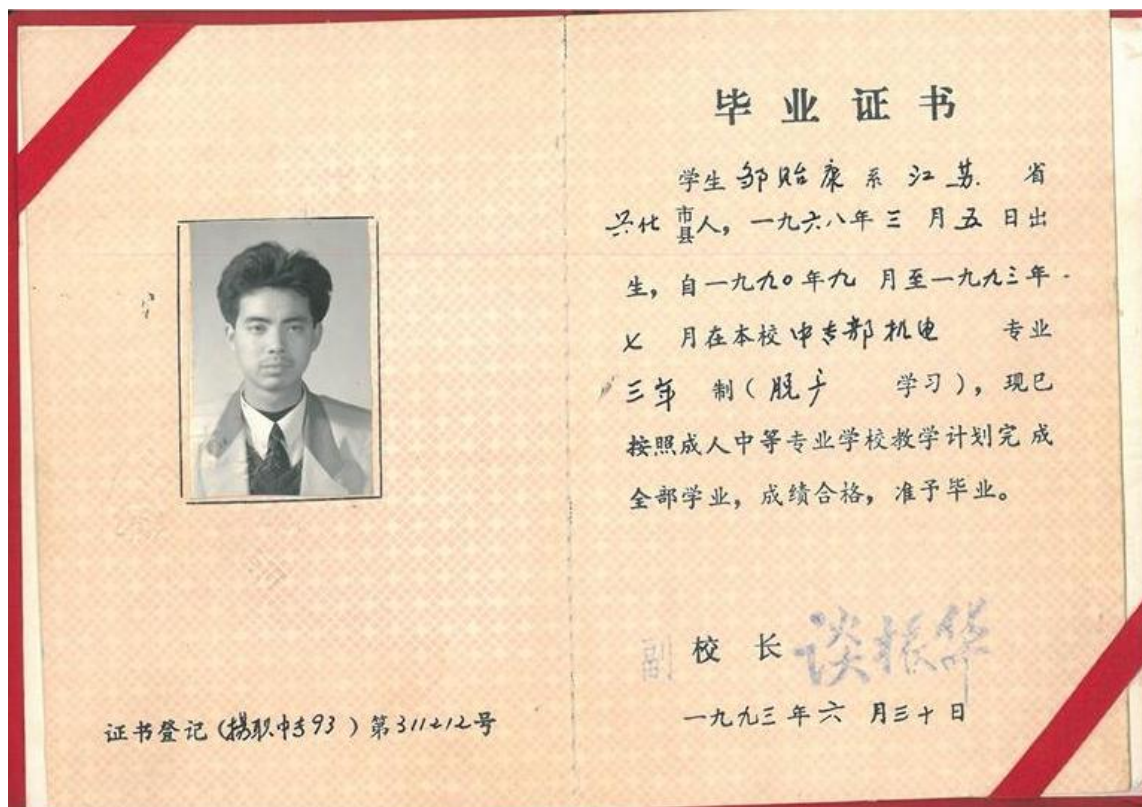 证书登记(扬职中专93)第311212号
毕业证书
学生 邹贻康 系 江苏 省
兴化 市县人，一九六八年 三 月 五 日出
生，自一九九〇年九 月至一九九三年
七 月在本校 中专部机电 专业
三年 制（脱产 学习），现已
按照成人中等专业学校教学计划完成
全部学业，成绩合格，准予毕业。
副 校 长 谈振华
一九九三年六 月三十日